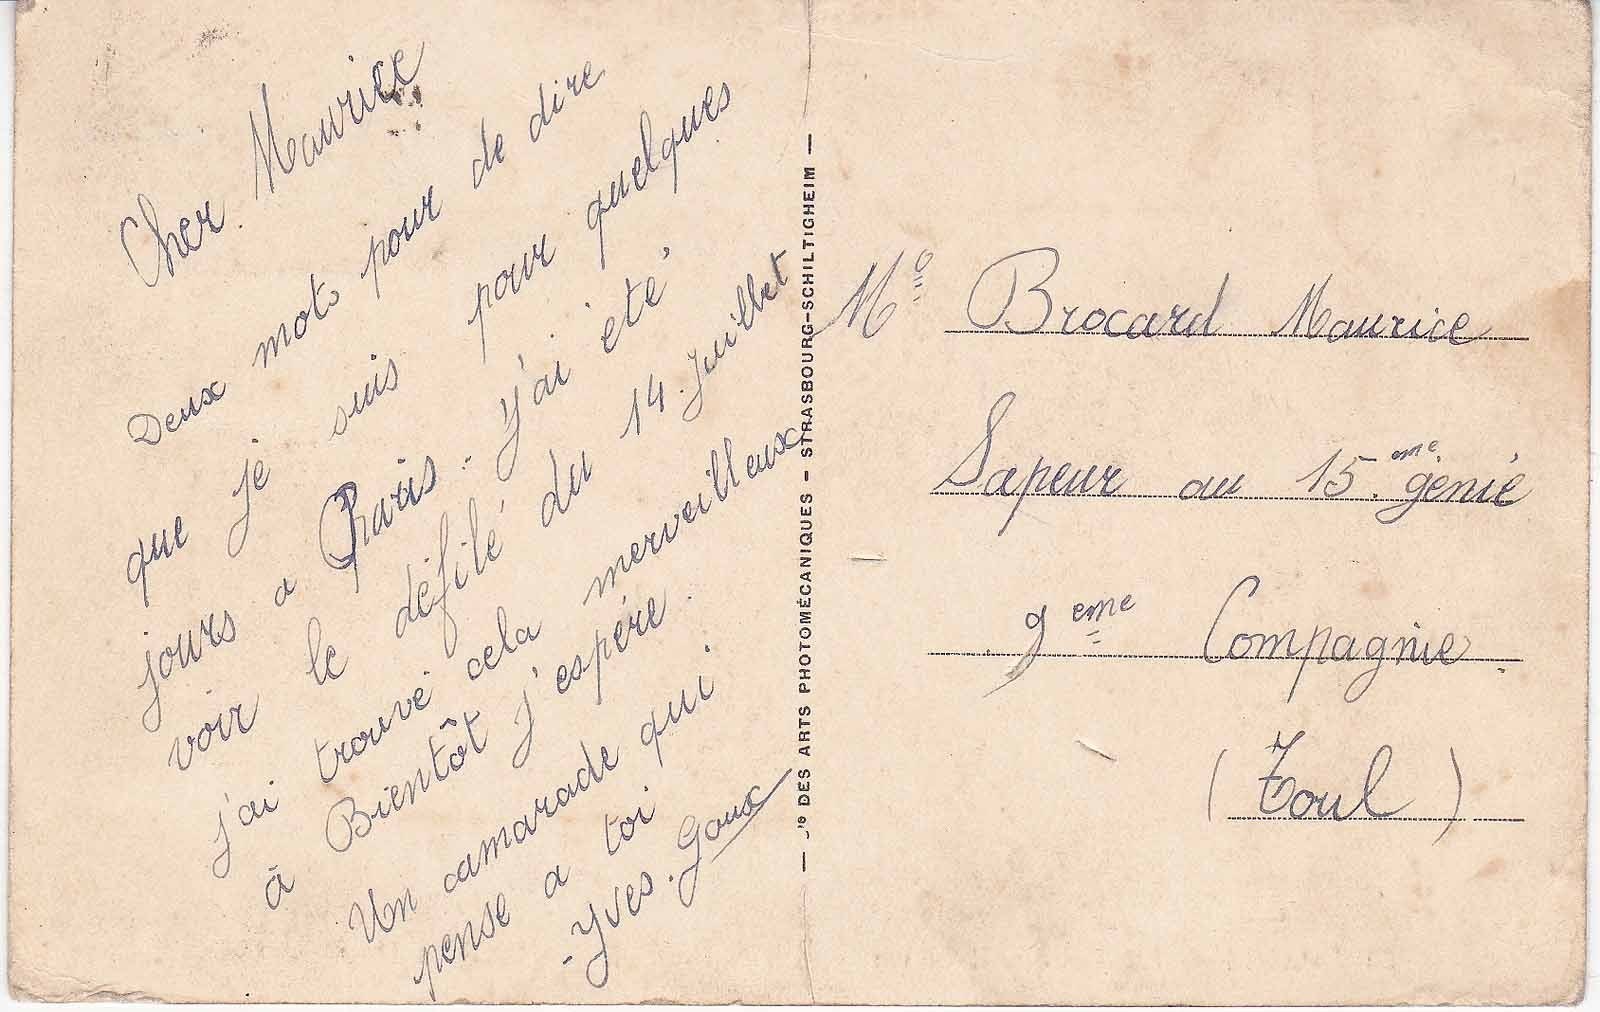 Cher Maurice
Deux mots pour de dire
que je suis pour quelques
jours a Paris. j'ai été
voir le défilé du 14 Juillet
j'ai trouvé cela merveilleux
à Bientôt j'espére.
Un camarade qui
pense a toi
- Yves. Goux
— DES ARTS PHOTOMÉCANIQUES - STRASBOURG-SCHILTIGHEIM —
Brocard Maurice
Sapeur au 15.eme génie
9eme Compagnie
(Toul)